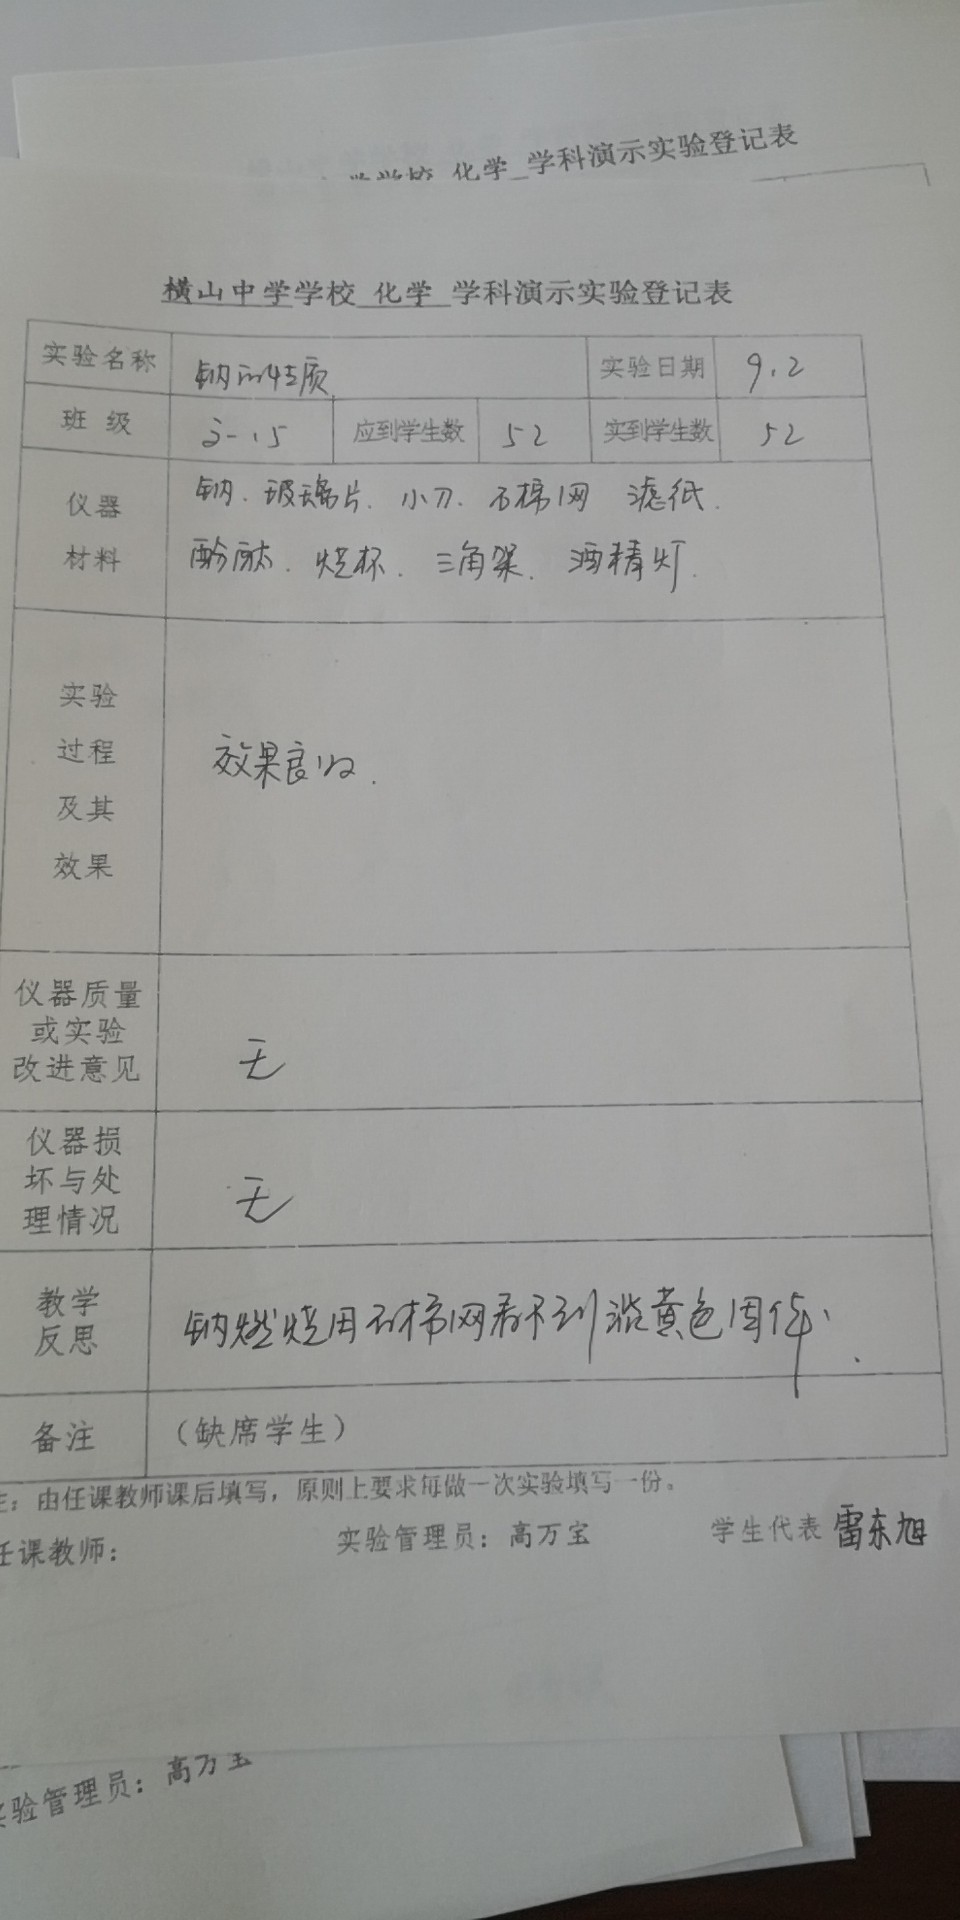 学校 化学 学科演示实验登记表
横山中学学校 化学 学科演示实验登记表
实验名称 钠的性质 实验日期 9.2
班级 高一.15 应到学生数 52 实到学生数 52
仪器 钠. 玻璃片. 小刀. 石棉网 滤纸.
材料 酚酞. 烧杯. 三角架. 酒精灯.
实验
过程
及其
效果
效果良好.
仪器质量
或实验
改进意见
无
仪器损
坏与处
理情况
无
教学
反思
钠燃烧用石棉网看不到淡黄色固体.
备注 （缺席学生）
注：由任课教师课后填写，原则上要求每做一次实验填写一份。
任课教师： 实验管理员：高万宝 学生代表 雷东旭
实验管理员：高万宝